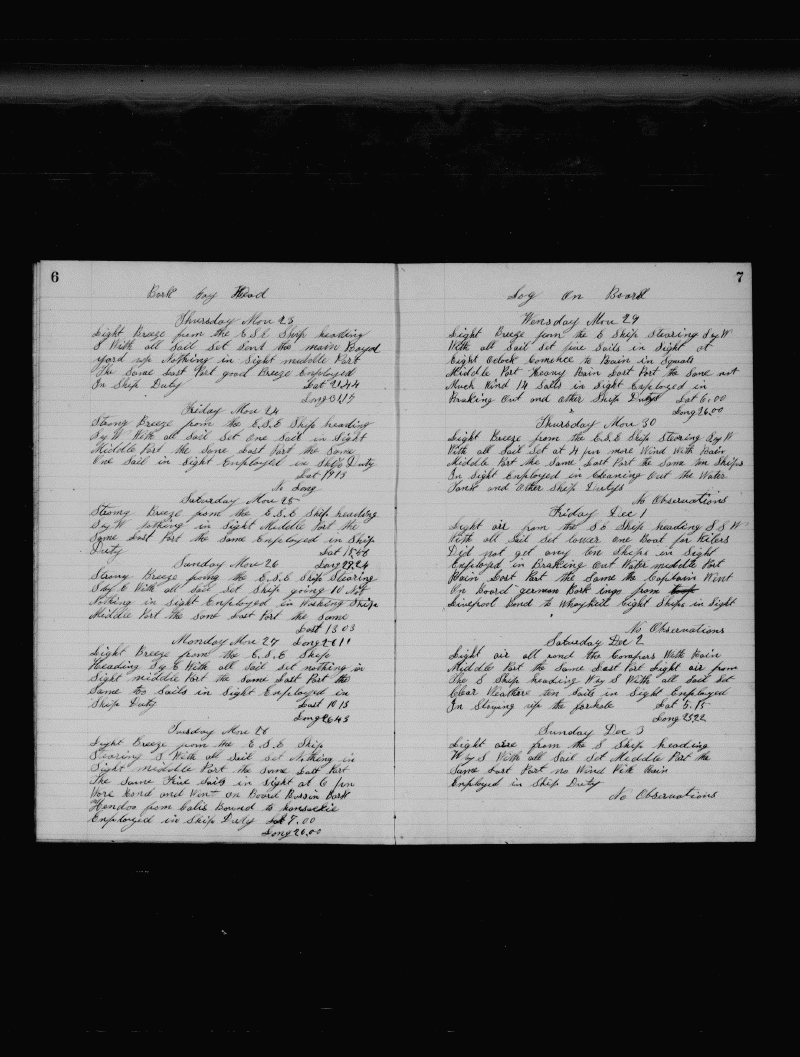 6
Bark Gay Head
Thursday Mon 23
Light Breeze from the E.S.E Ship heading
S With all Sail set Sent the main Royal
yard up Nothing in Sight middle Part
The Same Last Part good Breeze Employed
In Ship Duty Lat 21.44
Long 31.15
Friday Mon 24
Strong Breeze from the E.S.E Ship heading
S by W With all Sail Set One Sail in Sight
Middle Part the Same Last Part the Same
One Sail in Sight Employed in Ship Duty
Lat 19.13
No Long
Saturday Mon 25
Strong Breeze from the E.S.E Ship heading
S by W nothing in Sight Middle Part the
Same Last Part the Same Employed in Ship
Duty Lat 15.56
Sunday Mon 26 Long 27.24
Strong Breeze from the E.S.E Ship Stearing
S by E With all Sail Set Ship going 10 Not
Nothing in Sight Employed in Working Ship
Middle Part the Same Last Part the Same
Latt 13 03
Monday Mon 27 Long 26 11
Light Breeze from the E.S.E Ship
Heading S by E With all Sail set nothing in
Sight middle Part the Same Last Part the
Same two Sails in Sight Employed in
Ship Duty Latt 10 15
Long 26 45
Tuesday Mon 28
Light Breeze from the E.S.E Ship
Stearing S With all Sail Set Nothing in
Sight middle Part the Same Last Part
The Same Five Sails in Sight at 6 pm
Wore Round and Went on Board Russin Bark
Hendoo from Calis Bound to
Employed in Ship Duty Lat 7.00
Long 26.00
7
Log On Board
Wensday Mon 29
Light Breeze from the E Ship Stearing S by W
With all Sail Set five Sails in Sight at
Eight Oclock Comence to Rain in Squals
Middle Part Heavy Rain Last Part the Same not
Much Wind 14 Sails in Sight Employed in
Braking Out and other Ship Dutys Lat 6.00
Long 26.00
Thursday Mon 30
Light Breeze from the E.S.E Ship Stearing S by W
With all Sail Set at 4 pm more Wind With Rain
Middle Part the Same Last Part the Same ten Ships
In Sight Employed in Cleaning Out the Water
Tank and Other Ship Dutys
No Observations
Friday Dec 1
Light air from the SE Ship heading S S W
With all Sail Set lower one Boat for Kilers
Did not get any ten Ships in Sight
Employed in Braking Out Water middle Part
Rain Last Part the Same the Captain Went
On Board german Bark from
Liverpool Bond to Eight Ships in Sight
No Observations
Saturday Dec 2
Light air all rond the Compass With Rain
Middle Part the Same Last Part Light air from
The S Ship heading W by S With all Sail Set
Clear Weathere ten Sails in Sight Employed
In Stoying up the forhole Lat 5.15
Long 25 22
Sunday Dec 3
Light aire from the S Ship heading
W by S With all Sail Set Middle Part the
Same Last Part no Wind With Rain
Employed in Ship Duty
No Observations